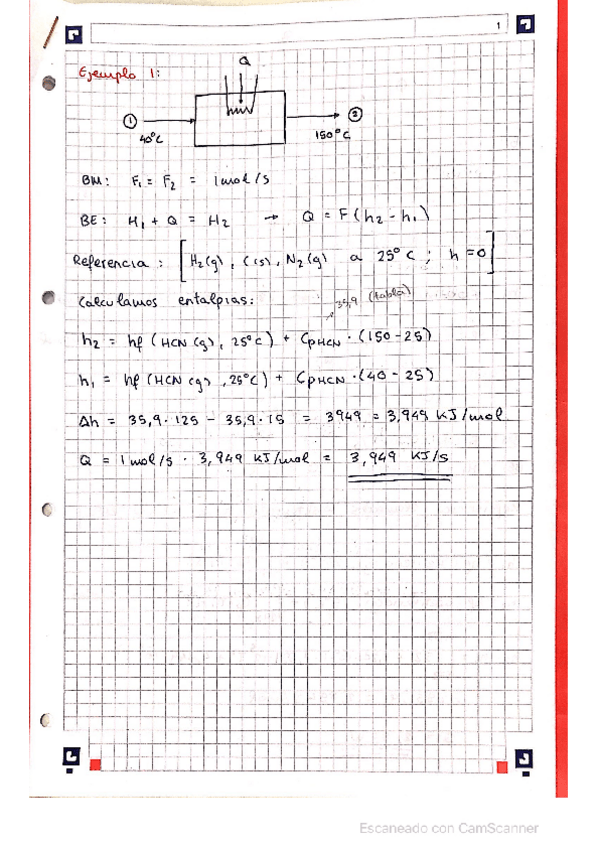 1
Ejemplo 1:
Q
① 40°C
② 150°C
BM: F₁ = F₂ = 1mol/s
BE: H₁ + Q = H₂ → Q = F(h₂ - h₁)
Referencia: [H₂(g), C(s), N₂(g) a 25°C; h=0]
Calculamos entalpias:
35,9 (tabla)
h₂ = hf (HCN(g), 25°C) + CpHCN · (150-25)
h₁ = hf (HCN(g), 25°C) + CpHCN · (40-25)
Δh = 35,9·125 - 35,9·15 = 3949 = 3,949 KJ/mol
Q = 1mol/s · 3,949 KJ/mol = 3,949 KJ/s
Escaneado con CamScanner